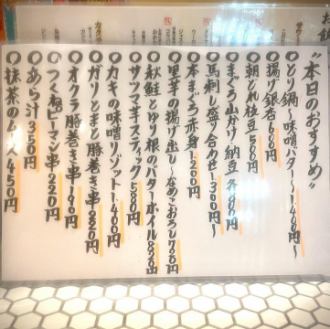 "本日のおすすめ"
○とり鍋〜味噌バター〜1,480円〜
○揚げ銀杏600円
○朝どれ枝豆500円
○まぐろ山かけ、納豆各800円
○馬刺し盛り合わせ1,300円〜
○本まぐろ赤身1,200円
○里芋の揚げ出し〜なめこおろし700円
○秋鮭とゆり根のバターホイル850円
○サツマ芋スティック580円
○カキの味噌リゾット1,400円
○ガリとまと豚巻き串280円
○オクラ豚巻き串190円
○つくねピーマン串220円
○あら汁350円
○抹茶のムース450円